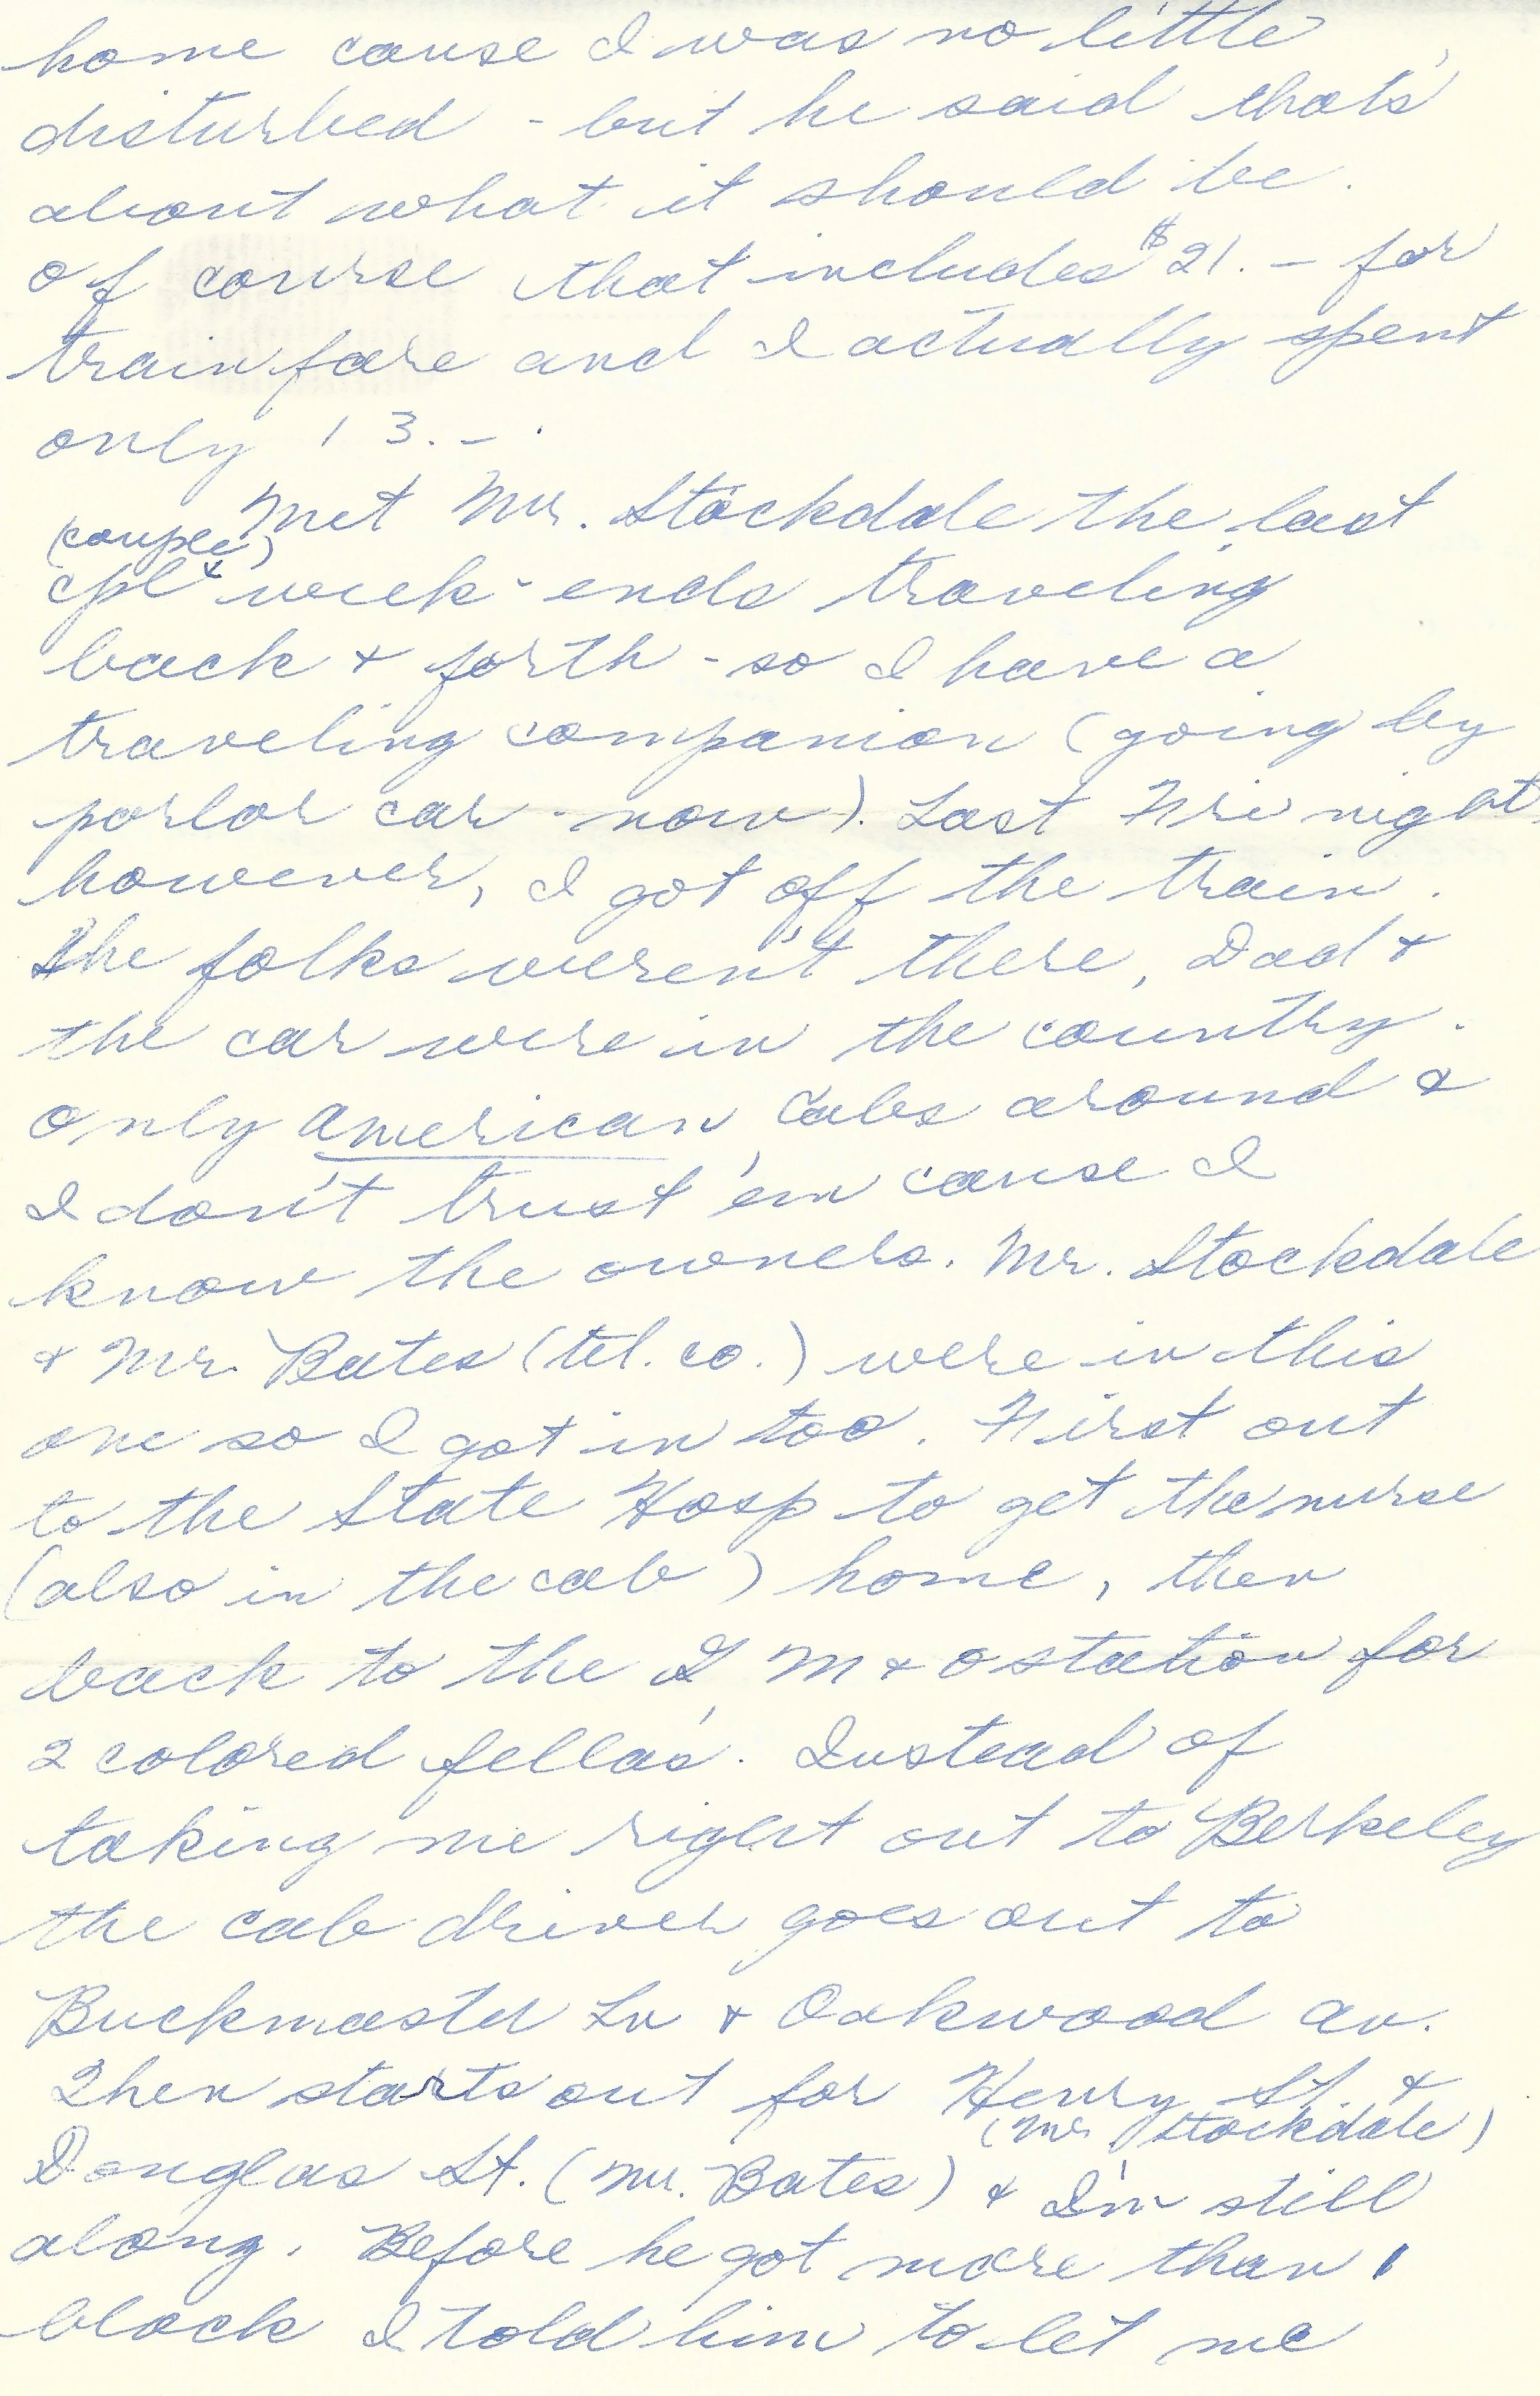 home cause I was no little
disturbed - but he said that's
about what it should be.
Of course that includes $21.- for
train fare and I actually spent
only 13.-.
Met Mr. Stockdale the last
(couple)
cpl week-ends traveling
back & forth - so I have a
traveling companion (going by
porlor car - now). Last Fri night,
however, I got off the train.
The folks weren't there, Dad &
the car were in the country.
Only American Cabs around &
I don't trust 'em cause I
know the owners. Mr. Stockdale
& Mr. Bates (tel. co.) were in this
one so I got in too. First out
to the State Hosp to get the nurse
(also in the cab) home, then
back to the G M & O station for
2 colored fella's. Instead of
taking me right out to Berkeley
the cab driver goes out to
Buckmaster Ln & Oakwood av.
Then starts out for Henry St. &
(Mr. Stockdale)
Douglas St. (Mr. Bates) & I'm still
along. Before he got more than 1
block I told him to let me